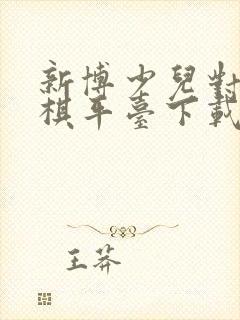 新博少兒對
棋平臺下載
王莽